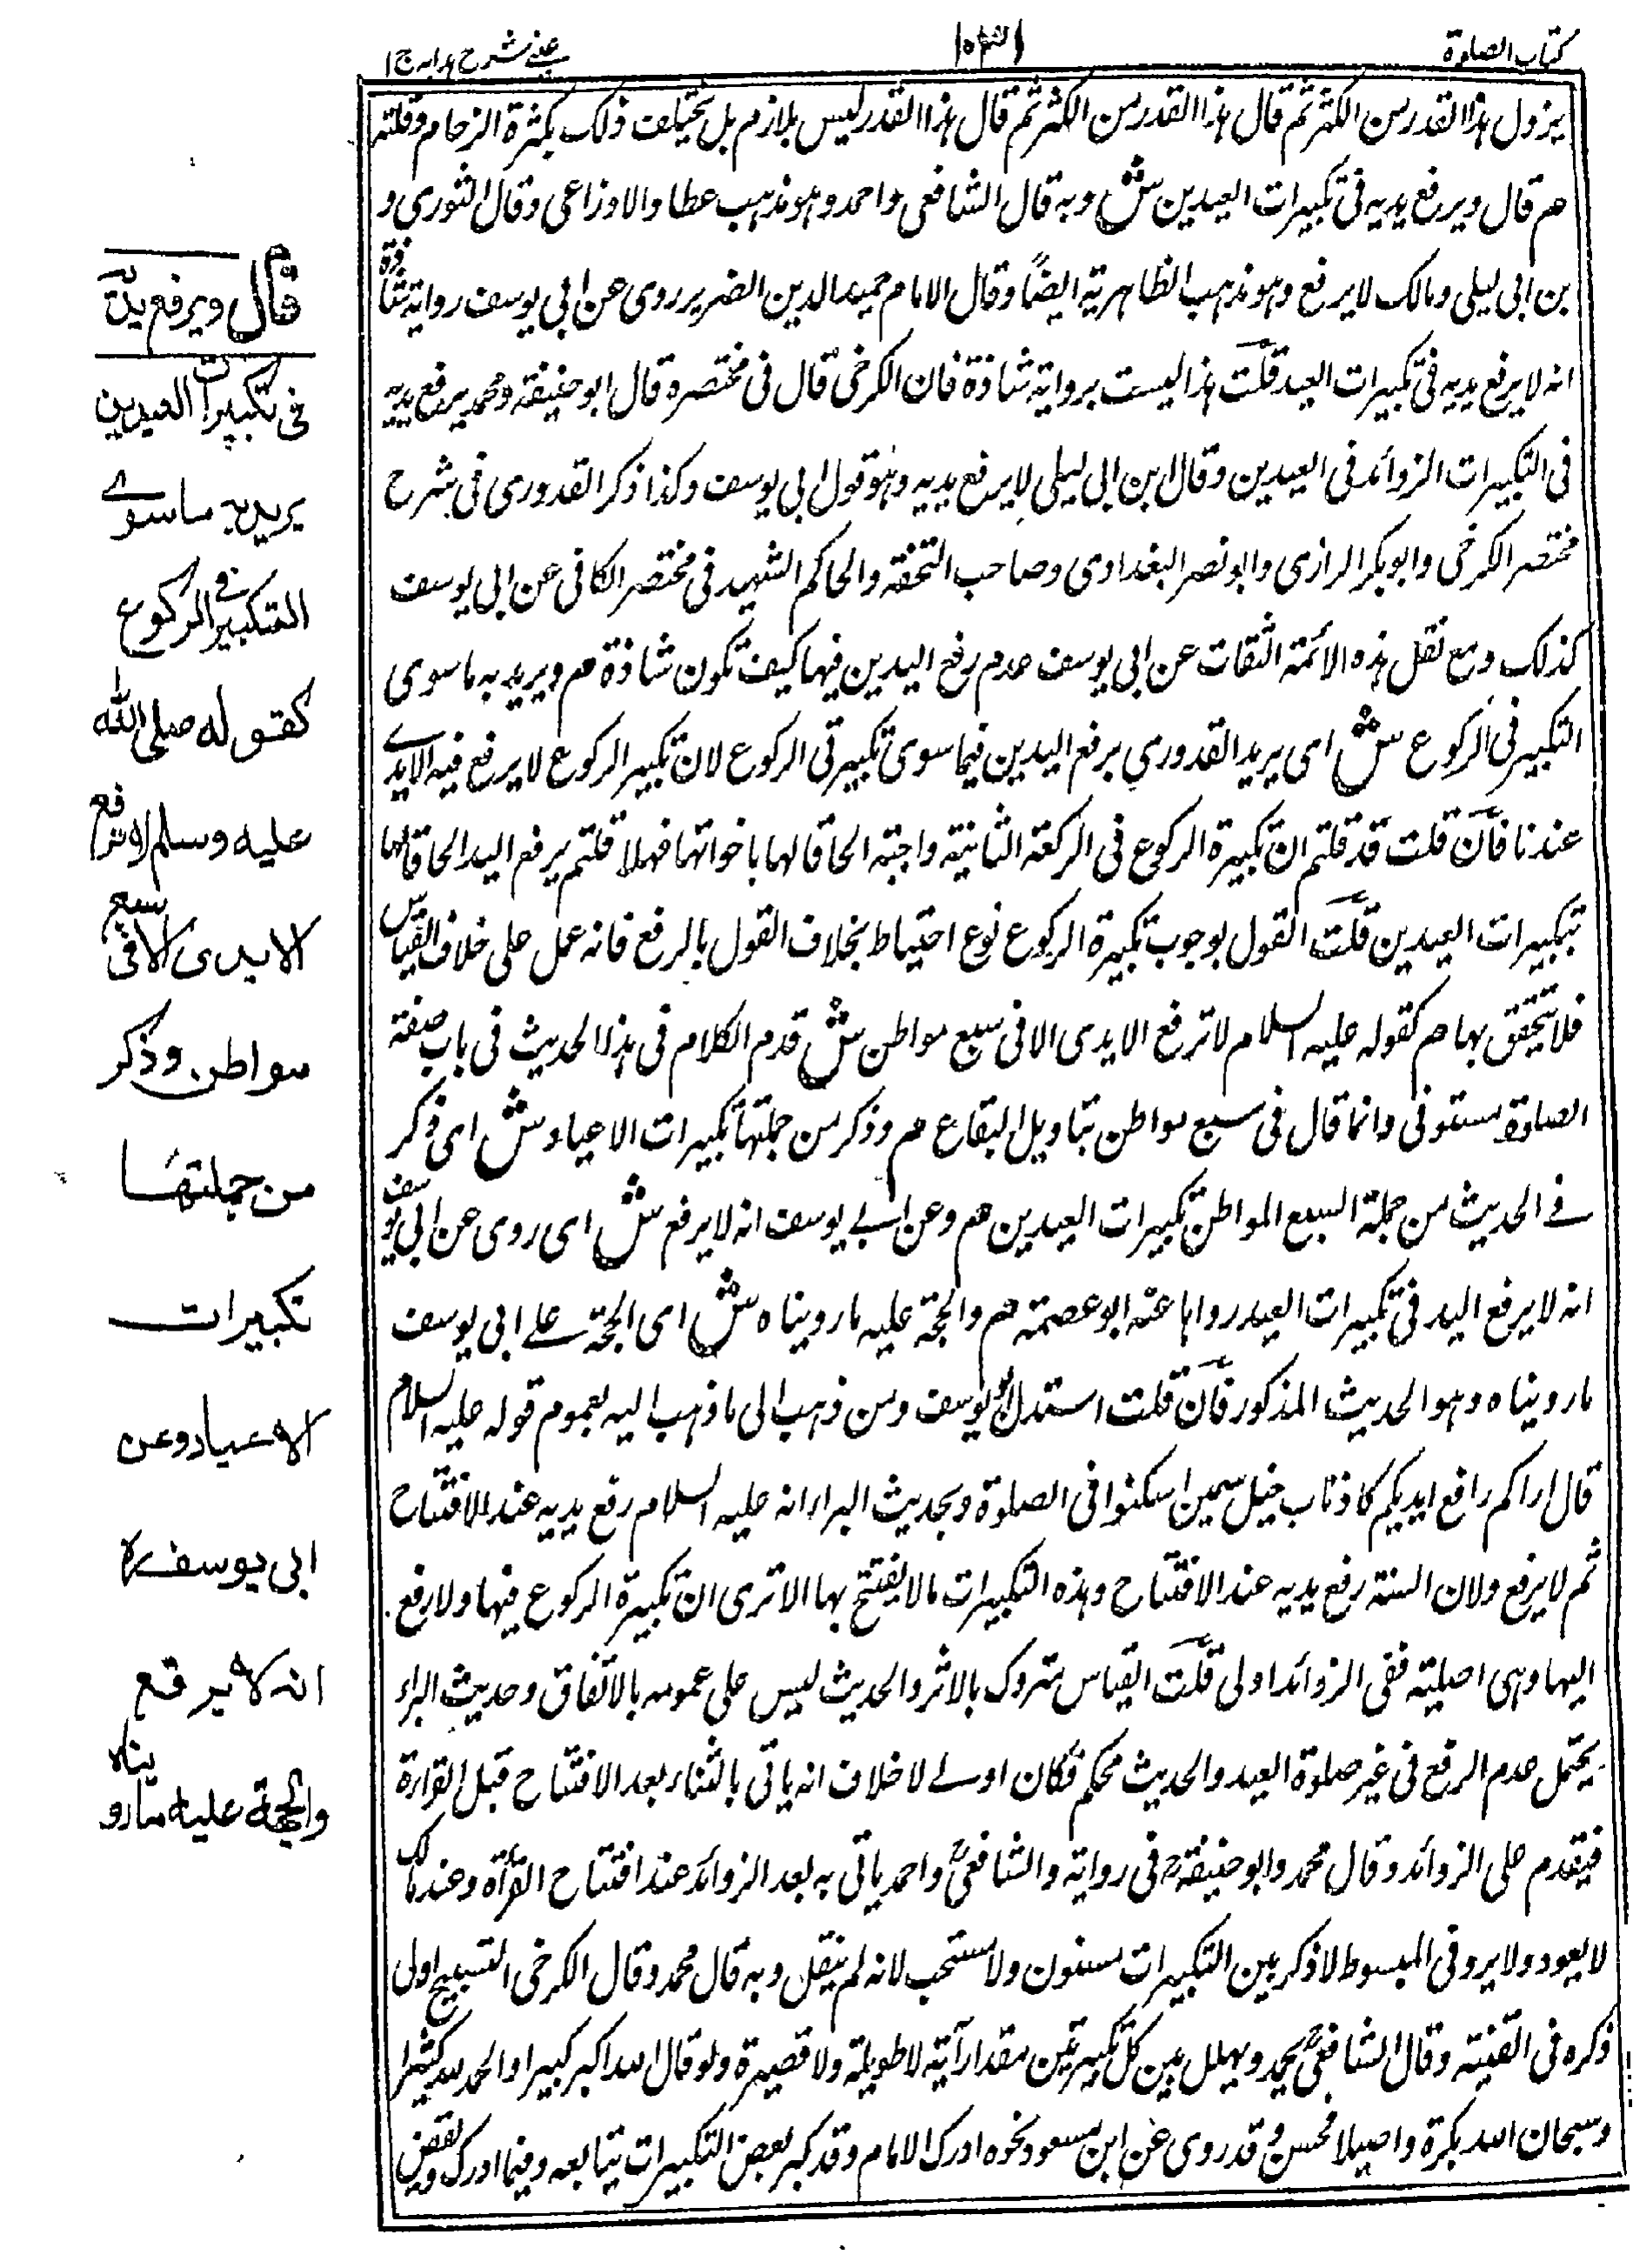 كتاب الصلوة
عينى شرح هدايه ج ١
يزول هذا القدر من الكثر ثم قال هذا القدر من الكثر ثم قال هذا القدر ليس بلازم بل يختلف ذلك بكثرة الزحام وقلته
هم قال ويرفع يديه فى تكبيرات العيدين ش وبه قال الشافعى واحمد وهو مذهب عطا والاوزاعى وقال الثورى و
بن ابى ليلى ومالك لا يرفع وهو مذهب الظاهرية ايضاً وقال الامام حميد الدين الضرير روى عن ابى يوسف رواية شاذة
انه لا يرفع يديه فى تكبيرات العيد قلت هذا ليست برواية شاذة فان الكرخى قال فى مختصره قال ابو حنيفة ومحمد يرفع يديه
فى التكبيرات الزوائد فى العيدين وقال ابن ابى ليلى لا يرفع يديه وهو قول ابى يوسف وكذا ذكر القدورى فى شرح
مختصر الكرخى وابو بكر الرازى وابو نصر البغدادى وصاحب التحفة والحاكم الشهيد فى مختصر الكافى عن ابى يوسف
كذلك ومع نقل هذه الائمة الثقات عن ابى يوسف عدم رفع اليدين فيها كيف تكون شاذة هم ويريد به ما سوى
التكبير فى الركوع ش اى يريد القدورى برفع اليدين فيما سوى تكبيرتى الركوع لان تكبير الركوع لا يرفع فيه الايدے
عندنا فان قلت قد قلتم ان تكبيرة الركوع فى الركعة الثانية واجبة الحاقا لها باخواتها فهلا قلتم يرفع اليد الحاقا لها
بتكبيرات العيدين قلت القول بوجوب تكبيرة الركوع نوع احتياط بخلاف القول بالرفع فانه عمل على خلاف القياس
فلا يتحقق بها هم كقوله عليه السلام لا ترفع الايدى الا فى سبع مواطن ش قدم الكلام فى هذا الحديث فى باب صفة
الصلوة مستوفى وانما قال فى سبع مواطن بتاويل البقاع هم وذكر من جملتها تكبيرات الاعياد ش اى ذكر
فے الحديث من جملة السبع المواطن تكبيرات العيدين هم وعن ابے يوسف انه لا يرفع ش اى روى عن ابى يوسف
انه لا يرفع اليد فى تكبيرات العيد رواها عنه ابو عصمة هم والحجة عليه ما رويناه ش اى الحجة علے ابى يوسف
ما رويناه وهو الحديث المذكور فان قلت استدل ابو يوسف ومن ذهب الى ما ذهب اليه بعموم قوله عليه السلام
قال اراكم رافع ايديكم كاذناب خيل سمين اسكنوا فى الصلوة وبحديث البراء انه عليه السلام رفع يديه عند الافتتاح
ثم لا يرفع ولان السنة رفع يديه عند الافتتاح وهذه التكبيرات مالا يفتتح بها الا ترى ان تكبيرة الركوع فيها ولا رفع
اليها وهى اصلية ففى الزوائد اولى قلت القياس متروك بالاثر والحديث ليس على عمومه بالاتفاق وحديث البراء
يحتمل عدم الرفع فى غير صلوة العيد والحديث محكم فكان اولے لا خلاف انه ياتى بالثناء بعد الافتتاح قبل القراءة
فيقدم على الزوائد وقال محمد وابو حنيفةؒ فى رواية والشافعىؒ واحمد ياتى به بعد الزوائد عند افتتاح القراءة وعند مالك
لا يعود ولا يرو فى المبسوط لا ذكر بين التكبيرات مسنون ولا مستحب لانه لم ينقل وبه قال محمد وقال الكرخى التسبيح اولى
ذكره فى القنية وقال الشافعىؒ يحمد ويهلل بين كل تكبيرتين مقدار آية لا طويلة ولا قصيرة ولو قال الله اكبر كبيرا والحمد لله كثيرا
وسبحان الله بكرة واصيلا فحسن وقد روى عن ابن مسعود نحوه ادرك الامام وقد كبر بعض التكبيرات يتابعه وفيما ادرك ويقضى
قال ويرفع يديه
فى تكبيرات العيدين
يريد به ماسوے
التكبير فى الركوع
كقوله صلى الله
عليه وسلم لا ترفع
الايدى الا فى سبع
مواطن وذكر
من جملتها
تكبيرات
الاعياد وعن
ابى يوسفؒ
انه لا يرفع
والحجة عليه ما رويناه